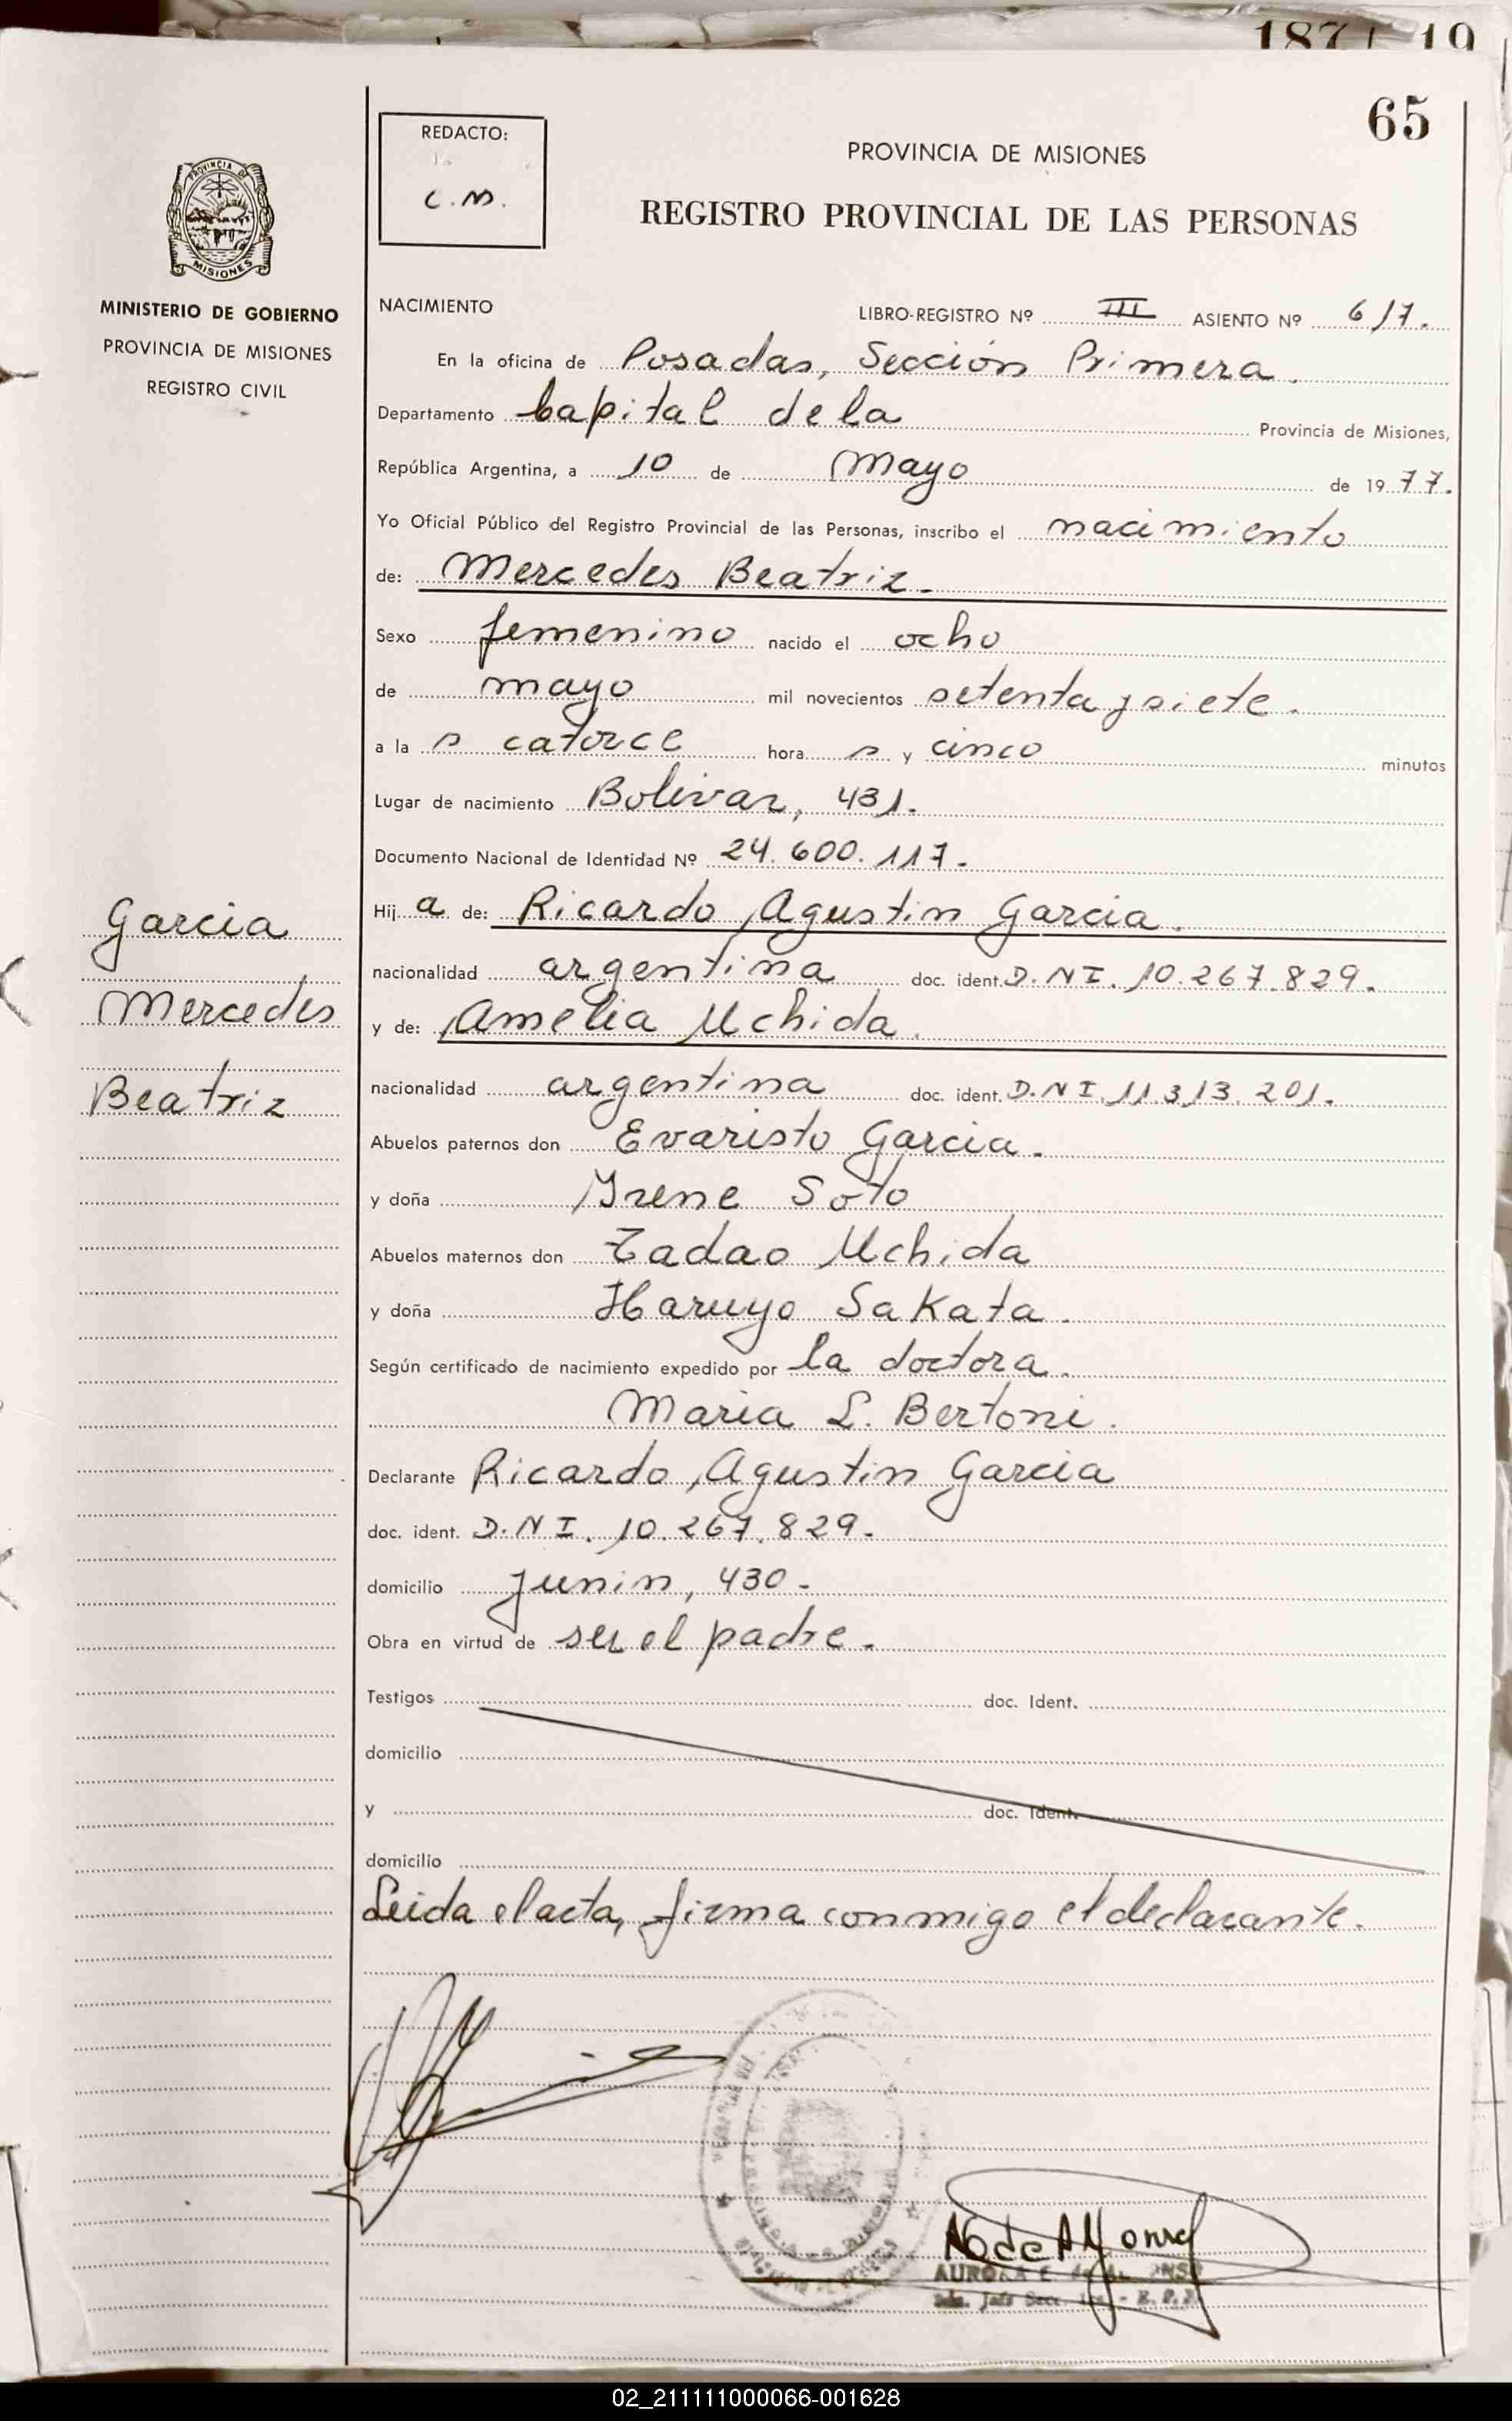 187 19
65
REDACTO:
C.M.
PROVINCIA DE MISIONES
REGISTRO PROVINCIAL DE LAS PERSONAS
PROVINCIA DE
MISIONES
MINISTERIO DE GOBIERNO
PROVINCIA DE MISIONES
REGISTRO CIVIL
NACIMIENTO LIBRO-REGISTRO Nº III ASIENTO Nº 617.
En la oficina de Posadas, Sección Primera.
Departamento Capital de la Provincia de Misiones,
República Argentina, a 10 de Mayo de 1977.
Yo Oficial Público del Registro Provincial de las Personas, inscribo el nacimiento
de: Mercedes Beatriz.
Sexo femenino nacido el ocho
de mayo mil novecientos setenta y siete.
a la s catorce hora s y cinco minutos
Lugar de nacimiento Bolivar, 431.
Documento Nacional de Identidad Nº 24.600.117.
Hij a de: Ricardo Agustin Garcia.
nacionalidad argentina doc. ident. D.N I. 10.267.829.
y de: Amelia Uchida.
nacionalidad argentina doc. ident. D.N I. 11.313.201.
Abuelos paternos don Evaristo Garcia.
y doña Irene Soto
Abuelos maternos don Tadao Uchida
y doña Haruyo Sakata.
Según certificado de nacimiento expedido por la doctora.
Maria L. Bertoni.
Declarante Ricardo Agustin Garcia
doc. ident. D.N I. 10.267.829.
domicilio Junin, 430.
Obra en virtud de ser el padre.
Testigos doc. Ident.
domicilio
y doc. Ident.
domicilio
Leida el acta, firma conmigo el declarante.
Garcia
Mercedes
Beatriz
AURORA E. de ALFONSO
02_211111000066-001628